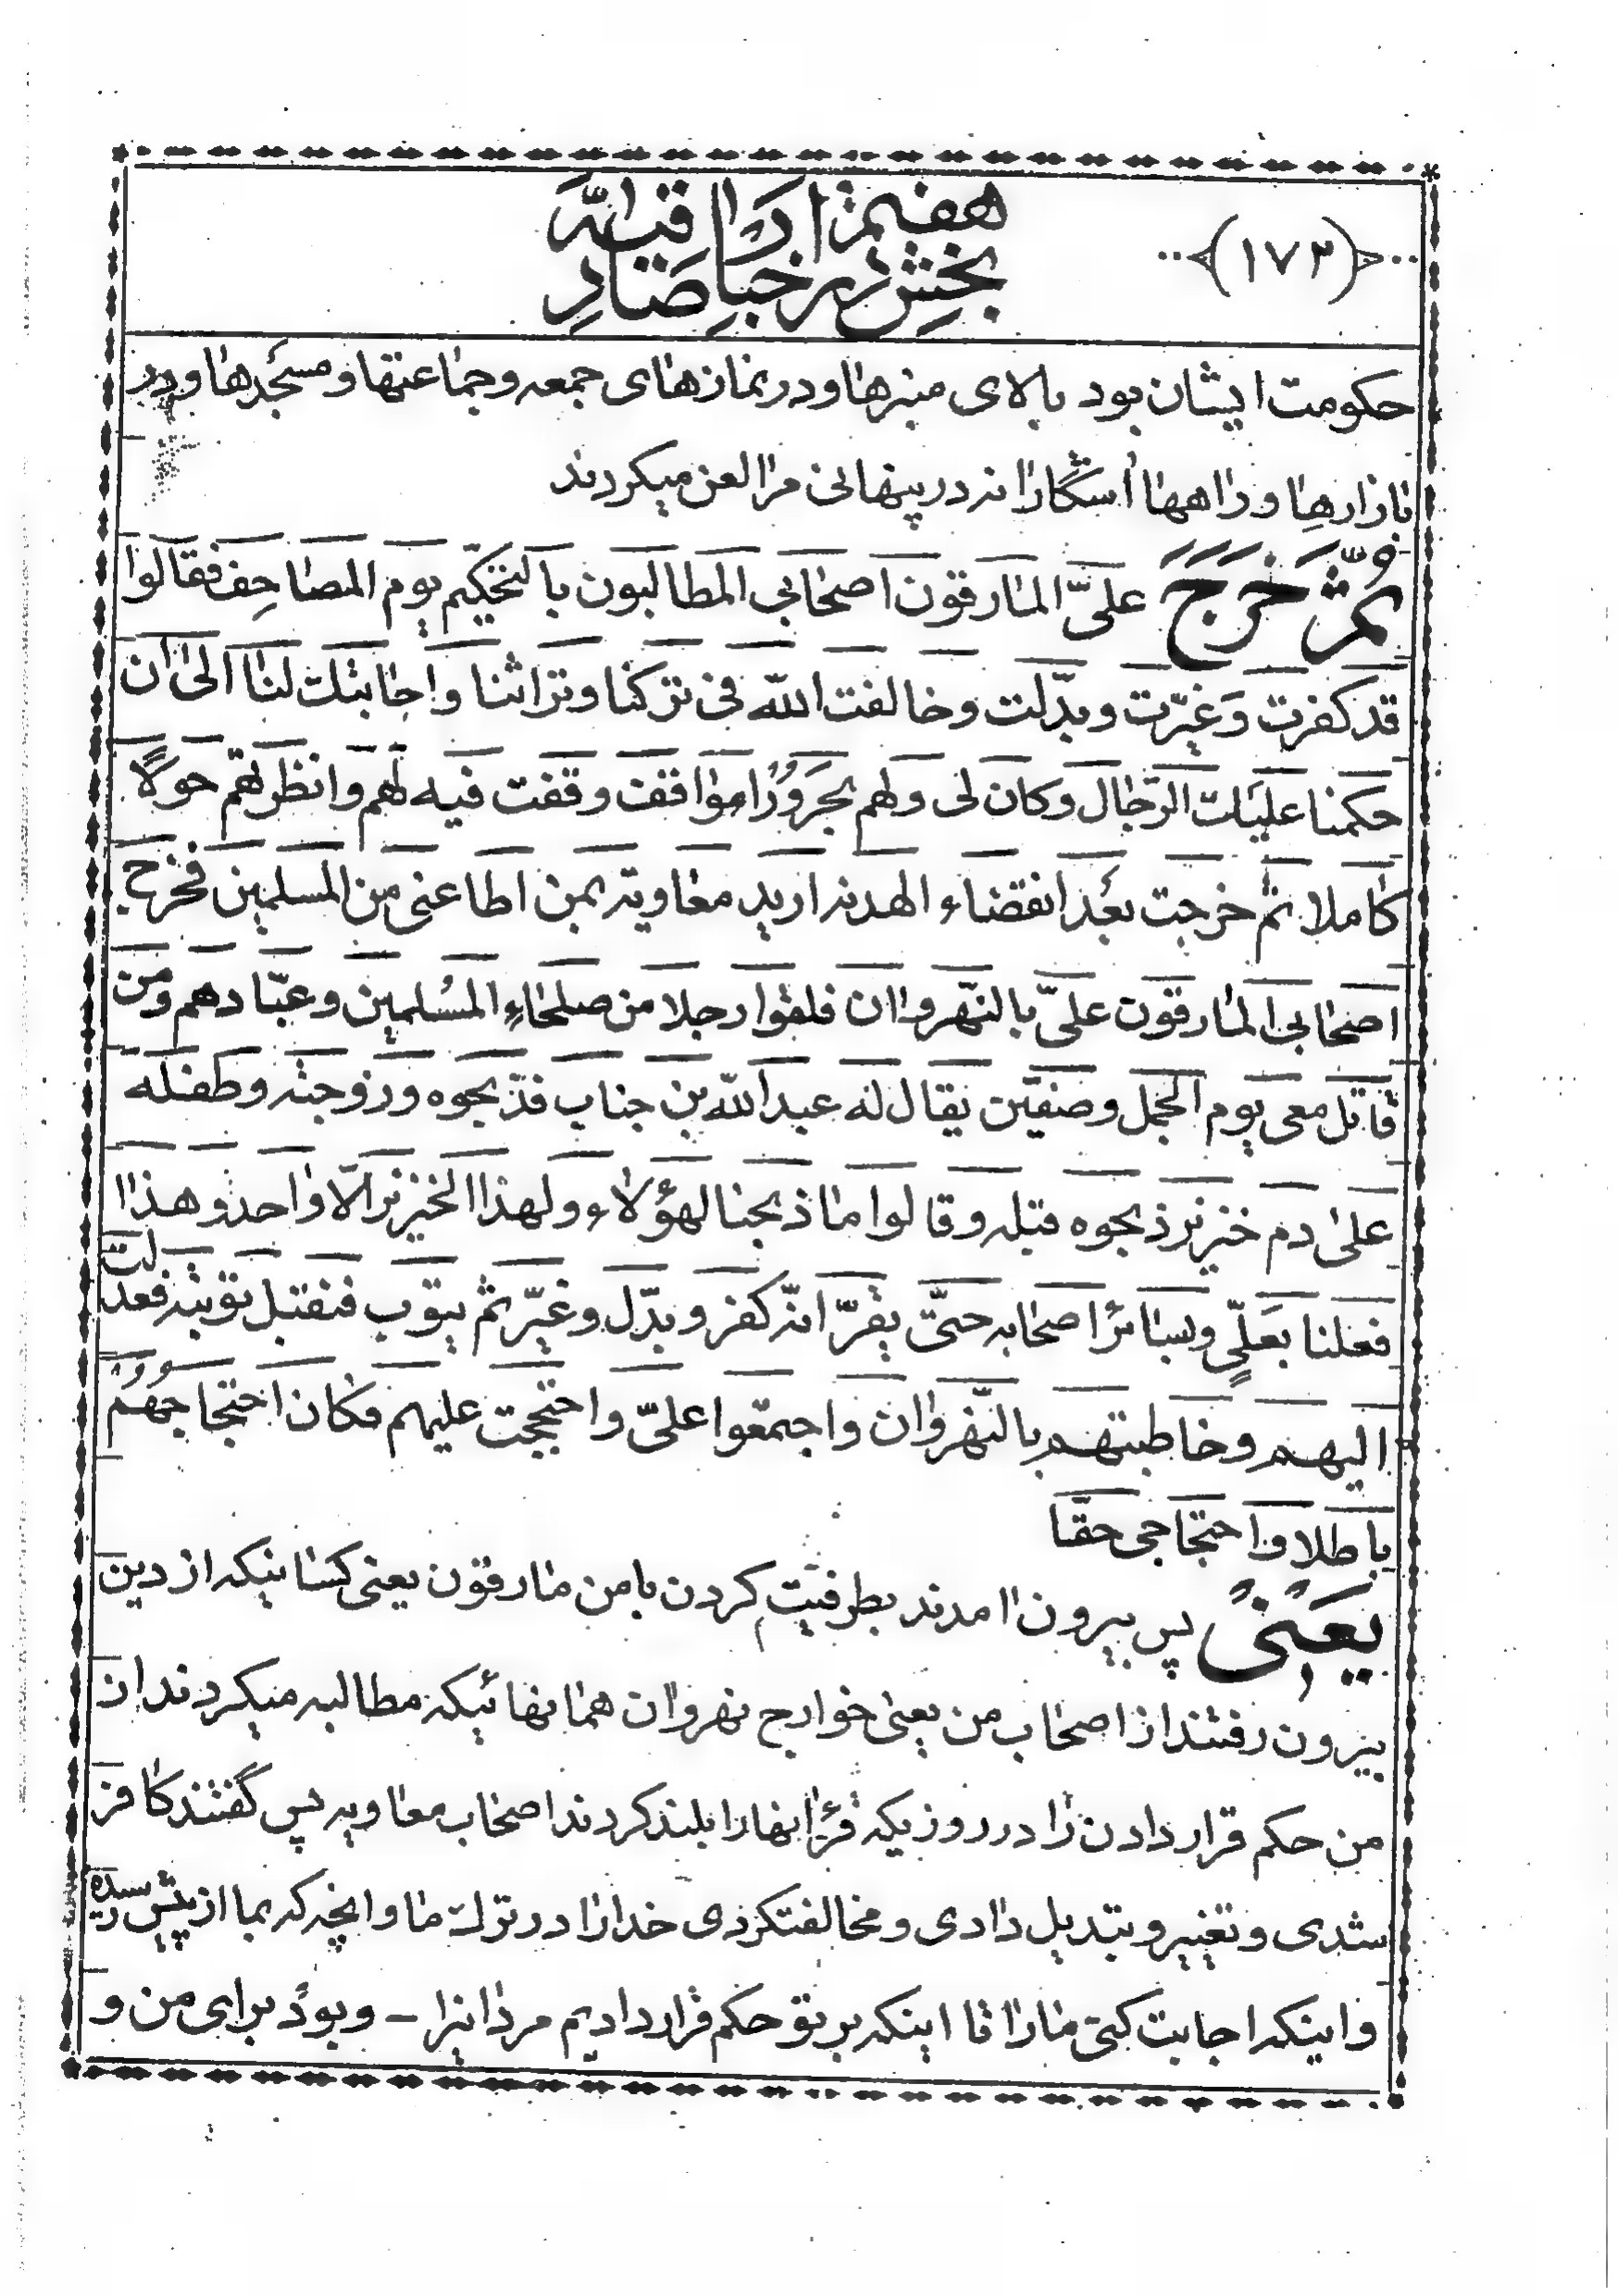 (١٧٣)
بخش هفتم در اخبار صادقیه
حکومت ایشان بود بالای منبرها و در نمازهای جمعه و جماعتها و مسجدها و در
بازارها و راهها آشکارا نه در پنهانی مرا لعن میکردند
ثُمَّ خَرَجَ علیَّ المارقون اصحابی المطالبون بالتحکیم یوم المصاحف فقالوا
قد کفرت وَ غیّرت و بدّلت و خالفت اللّه فی ترکنا و تراثنا و اجابتک لنا الی ان
حکمنا علیک الرّجال و کان لی و لهم بجَرَورُا موافقف وقفت فیه لهم وانظرلهم حولًا
کاملا ثم خرجت بعد انقضاء الهدنه ارید معاویه بمن اطاعنی من المسلمین فخرج
اصحابی المارقون علیّ بالنّهروان فلقوا رجلا من صلحاءِ المسلمین و عبّادهم و من
قاتل معی یوم الجمل و صفیّن یقال له عبد اللّه بن جناب فذّبحوه و زوجته و طفله
علیٰ دم خنزیر ذبحوه قبله و قالوا ما ذبحنا لهؤلاء و لهذا الخنزیر الّا واحد و هذا
فعلنا بعَلیٍّ و بسائر اصحابه حتیّٰ یقرّ انّه کفر و بدّل و غیّر ثم یتوب فنقبل توبته فعدلت
الیهم و خاطبتهم بالنّهروان و اجمتعوا علیّ و احتججت علیهم فکان احتجاجهُمُ
باطلا و احتجاجی حقّا
یعَنیْ پس بیرون امدند بطرفیّت کردن با من مارقون یعنی کسانیکه از دین
بیرون رفتند از اصحاب من یعنی خوارج نهروان همانهائیکه مطالبه میکردند از
من حکم قرار دادن را در روزیکه قرآنها را بلند کردند اصحاب معاویه پس گفتند کافر
شدی و تغییر و تبدیل دادی و مخالفتکردی خدا را در ترک ما و انچه که بما از پیش رسیده
و اینکه اجابت کنی ما را تا اینکه بر تو حکم قرار دادیم مردانرا – و بود برای من و